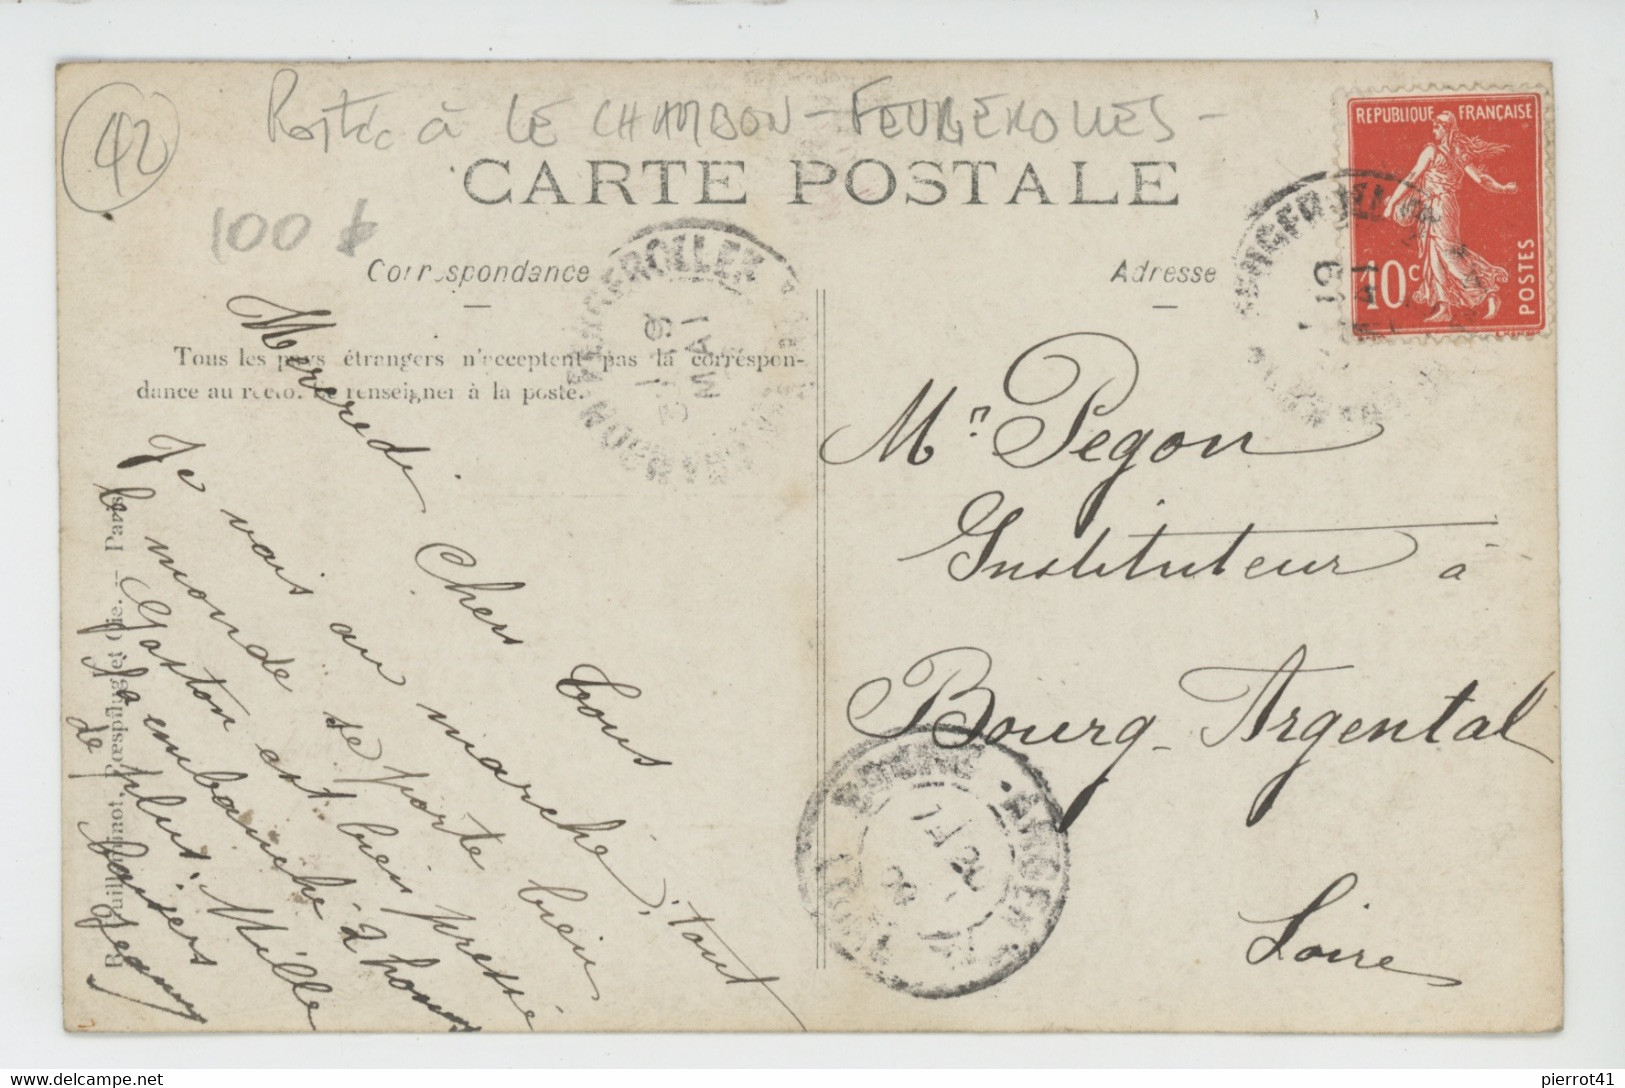 42
Postée à LE CHAMBON-FEUGEROLLES -
CARTE POSTALE
REPUBLIQUE FRANÇAISE
10c POSTES
100
Correspondance
Adresse
Tous les pays étrangers n'acceptent pas la correspon-
dance au recto. Se renseigner à la poste.
19
MAI
Mercredi
Chers tous
Je vais au marché, tout
le monde se porte bien
Gaston est bien pressé
j'a embauché 2 hom
de plus. Mille
baisers
Jeanne
Mn Pegon
Instituteur à
Bourg-Argental
Loire
BOURG-ARGENTAL
et Cie. — Paris
pierrot41